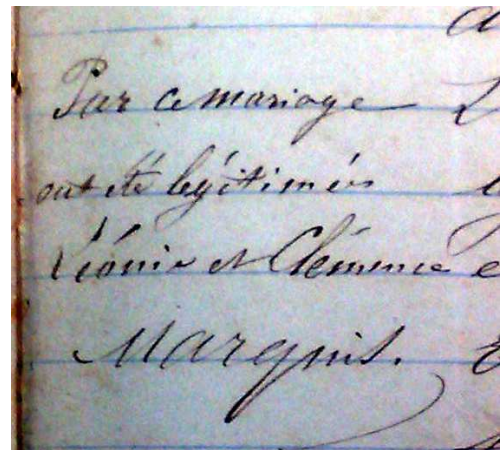 Par ce mariage
ont été légitimées
Léonie et Clémence
Marquis.